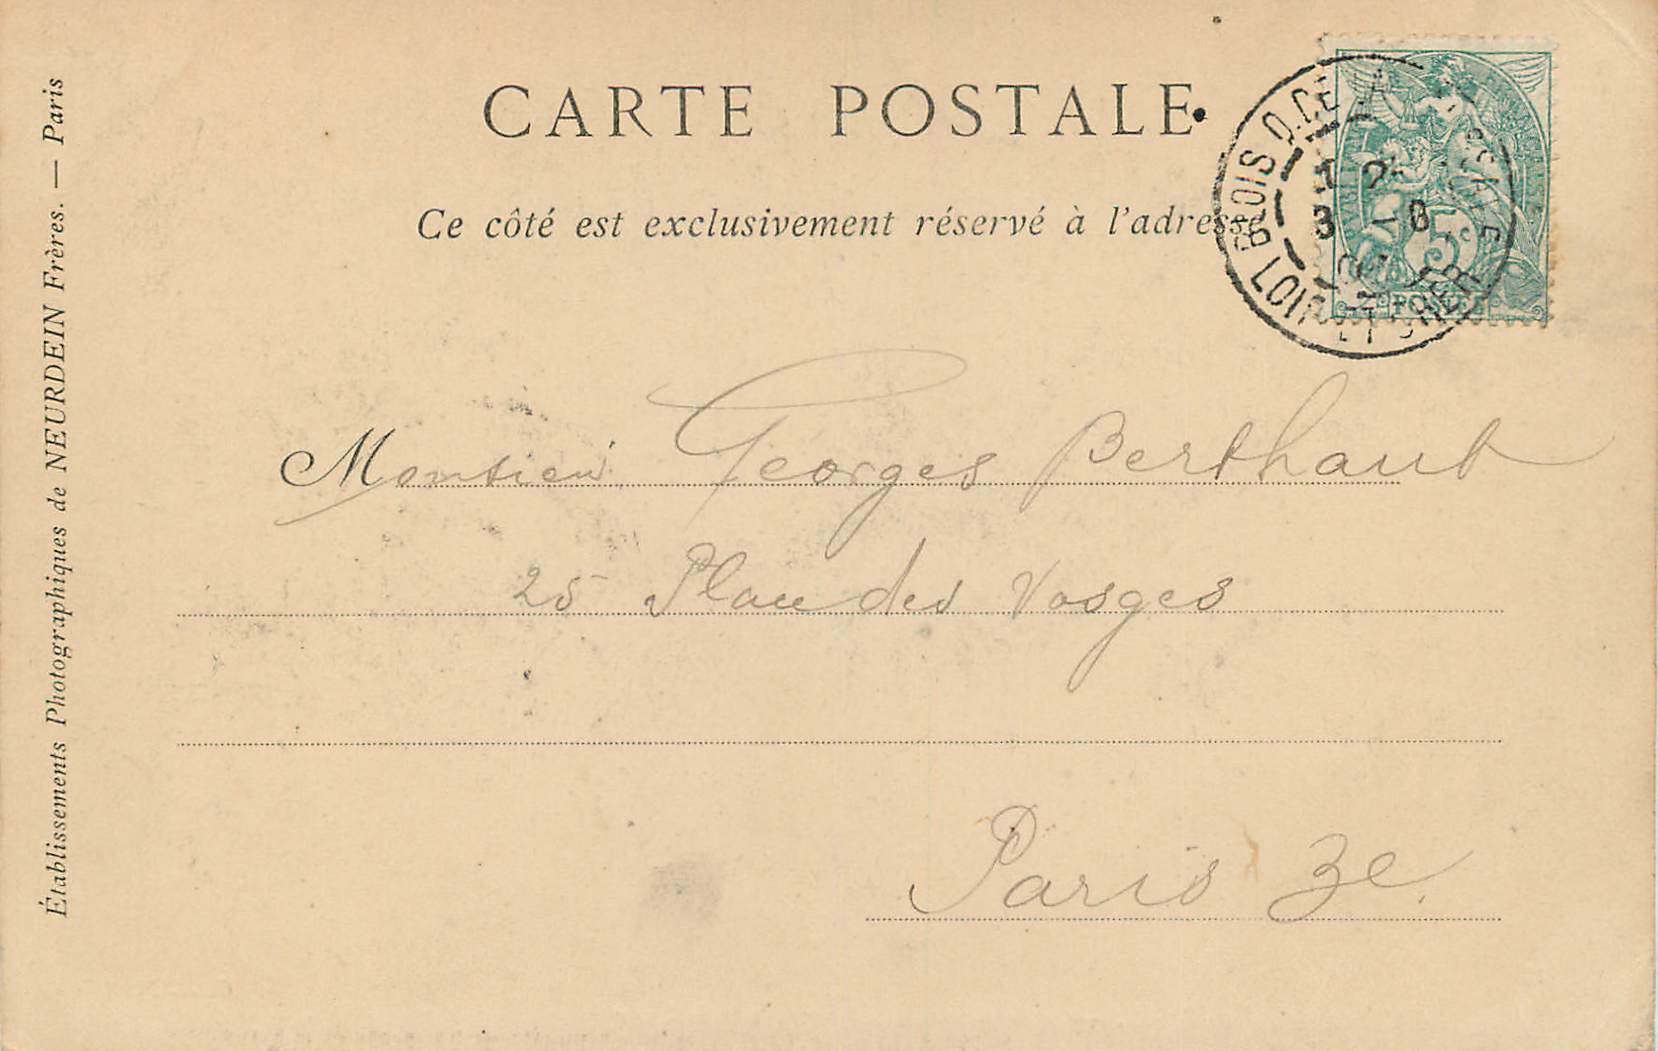 CARTE POSTALE
Ce côté est exclusivement réservé à l'adresse
Établissements Photographiques de NEURDEIN Frères. — Paris
BLOIS
3 - 8
LOIR ET CHER
5c
POSTES
Monsieur Georges Berthaut
25 Place des Vosges
Paris 3e.